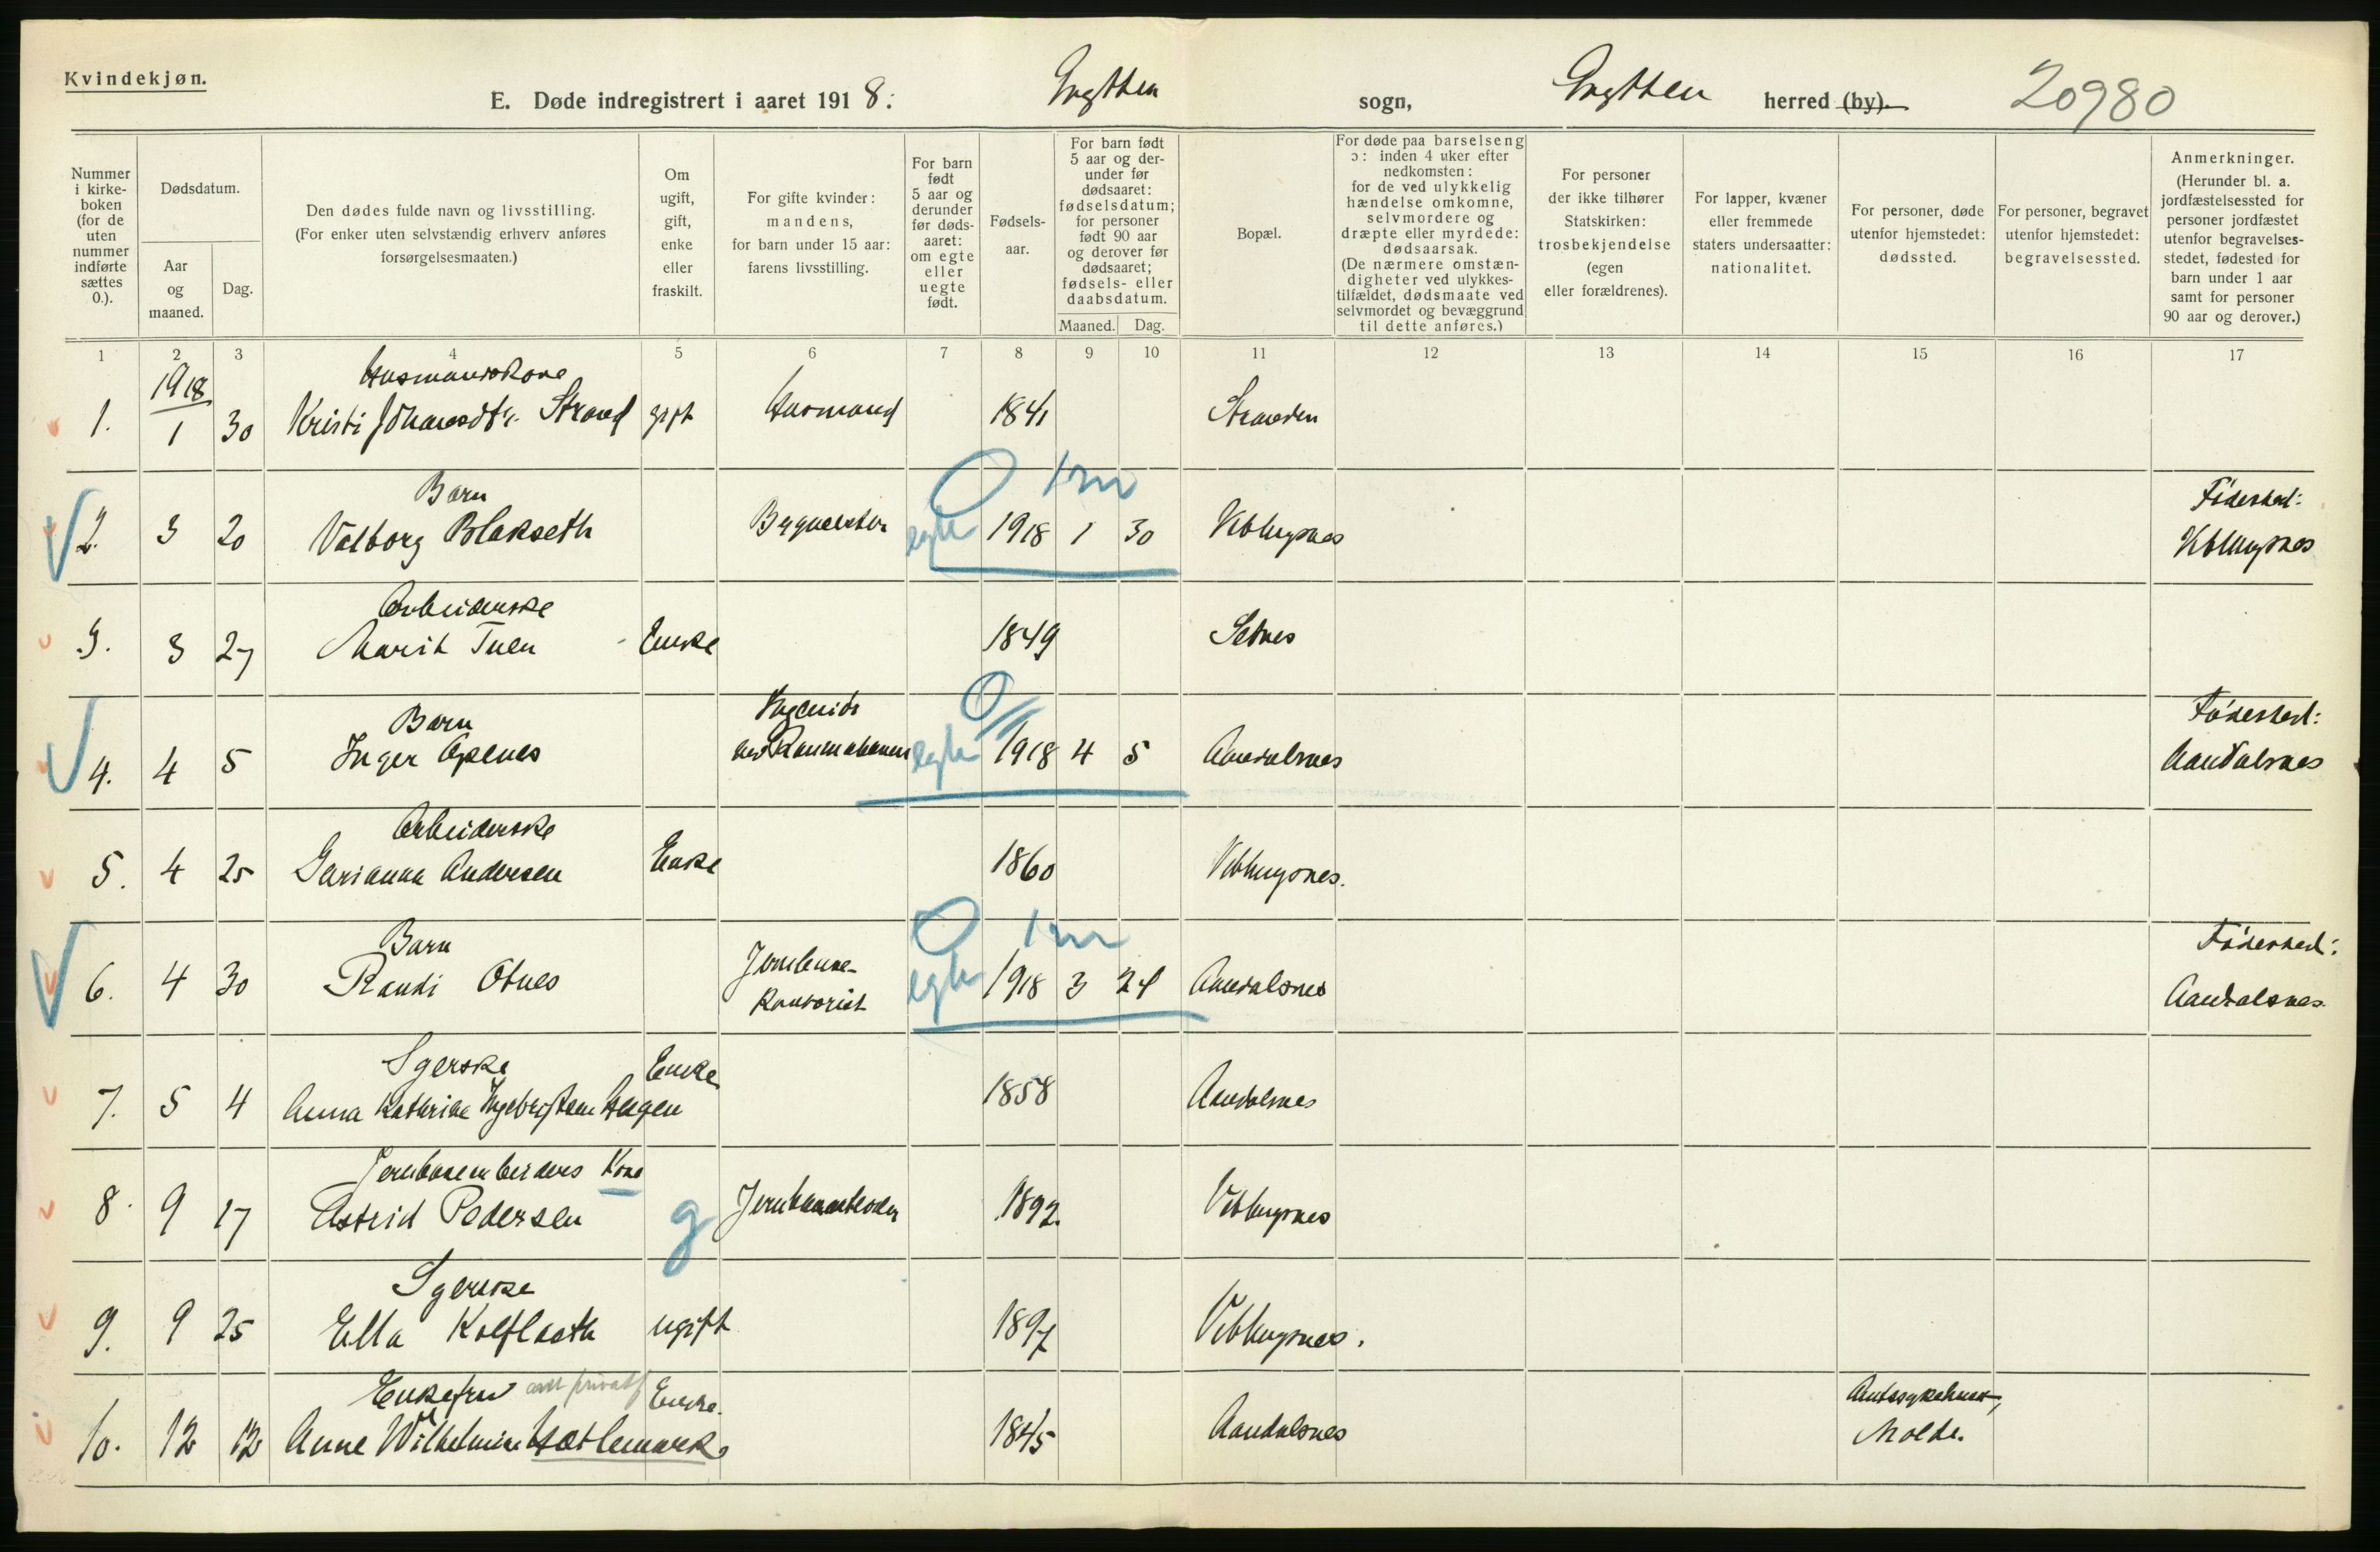 Kvindekjøn.
E. Døde indregistrert i aaret 1918: Grytten sogn, Grytten herred (by). 20980
Nummer i kirkeboken (for de uten nummer indførte sættes 0.).
Dødsdatum.
Aar og maaned.
Dag.
Den dødes fulde navn og livsstilling. (For enker uten selvstændig erhverv anføres forsørgelsesmaaten.)
Om ugift, gift, enke eller fraskilt.
For gifte kvinder: mandens, for barn under 15 aar: farens livsstilling.
For barn født 5 aar og derunder før dødsaaret: om egte eller uegte født.
Fødselsaar.
For barn født 5 aar og derunder før dødsaaret: fødselsdatum; for personer født 90 aar og derover før dødsaaret; fødsels- eller daabsdatum.
Maaned. Dag.
Bopæl.
For døde paa barselseng ɔ: inden 4 uker efter nedkomsten: for de ved ulykkelig hændelse omkomne, selvmordere og dræpte eller myrdede: dødsaarsak. (De nærmere omstændigheter ved ulykkestilfældet, dødsmaate ved selvmordet og bevæggrund til dette anføres.)
For personer der ikke tilhører Statskirken: trosbekjendelse (egen eller forældrenes).
For lapper, kvæner eller fremmede staters undersaatter: nationalitet.
For personer, døde utenfor hjemstedet: dødssted.
For personer, begravet utenfor hjemstedet: begravelsessted.
Anmerkninger. (Herunder bl. a. jordfæstelsessted for personer jordfæstet utenfor begravelsesstedet, fødested for barn under 1 aar samt for personer 90 aar og derover.)
1 2 3 4 5 6 7 8 9 10 11 12 13 14 15 16 17
1918 Husmandskone
1. 1 30 Kristi Johansdtr. Strand gift Husmand 1841 Stranden
Barn 0 1 m Fødested:
2. 3 20 Valborg Blakseth egte 1918 1 30 Veblungsnes Veblungsnes
Arbeiderske
3. 3 27 Marit Tuen Enke 1849 Setnes
Barn 0 Fødested:
4. 4 5 Inger egte 1918 4 5 Aandalsnes Aandalsnes
Arbeiderske
5. 4 25 Andersen Enke 1860 Veblungsnes.
Barn 0 1 m Jernbane- Fødested:
6. 4 30 Randi Otnes kontorist egte 1918 3 24 Aandalsnes Aandalsnes
Syerske Enke
7. 5 4 Anna Kathrine Ingebrigtsen Hagen 1858 Aandalsnes
Jernbanearbeiders Kone
8. 9 17 Astrid Pedersen g Jernbanearbeider 1892. Veblungsnes
Syerske
9. 9 25 Ella Kolflaath ugift 1897 Veblungsnes.
Enkefru Enke. Amtssykehuset,
10. 12 12 Anne Wilhelmine 1845 Aandalsnes Molde.